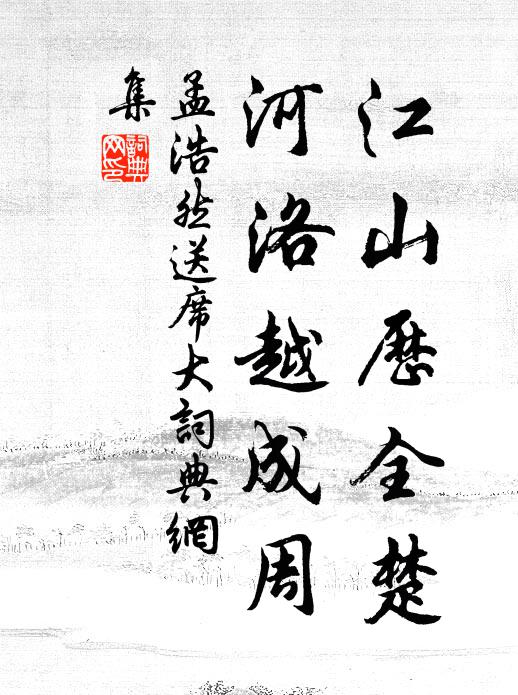 江山歷全楚
河洛越成周
孟浩然送席大詞典網
集
詞典網印